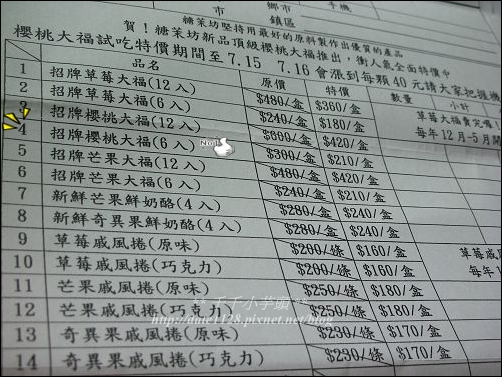 鄉市 手機
鎮區
賀!糖茉坊堅持用最好的原料製作出優質的產品
櫻桃大福試吃特價期間至7.15 7.16會漲到每顆40元請大家把握機
品名 原價 特價 數量 小計
1 招牌草莓大福(12入) $480/盒 $360/盒 草莓大福賣完嘍!
2 招牌草莓大福(6入) $240/盒 $180/盒 每年12月-5月開
3 招牌櫻桃大福(12入) $600/盒 $420/盒
4 招牌櫻桃大福(6入) $300/盒 $210/盒
5 招牌芒果大福(12入) $480/盒 $420/盒
6 招牌芒果大福(6入) $240/盒 $210/盒
7 新鮮芒果鮮奶酪(4入) $280/盒 $240/盒
8 新鮮奇異果鮮奶酪(4入) $280/盒 $240/盒
9 草莓戚風捲(原味) $200/條 $160/條 草莓戚
10 草莓戚風捲(巧克力) $200/條 $160/條 每年
11 芒果戚風捲(原味) $250/條 $180/條
12 芒果戚風捲(巧克力) $250/條 $180/條
13 奇異果戚風捲(原味) $230/條 $170/條
14 奇異果戚風捲(巧克力) $230/條 $170/條
千千小芋頭
http://daie1128.pixnet.net/blog